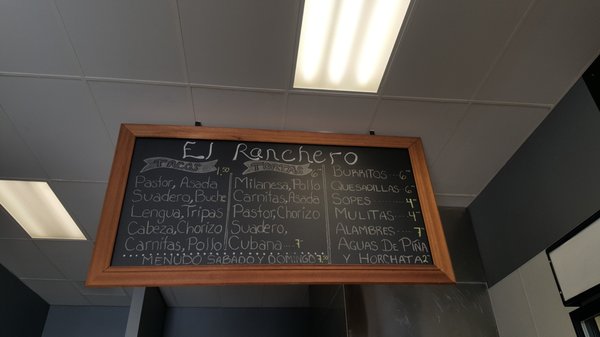 El Ranchero
TACOS 1.50
Pastor, Asada
Suadero, Buche
Lengua, Tripas
Cabeza, Chorizo
Carnitas, Pollo
TORTAS 6
Milanesa, Pollo
Carnitas, Asada
Pastor, Chorizo
Suadero,
Cubana ... 7
BURRITOS .. 6
QUESADILLAS .. 6
SOPES ... 4
MULITAS ... 4
ALAMBRES ... 7
AGUAS DE PIÑA
Y HORCHATA 2
MENUDO SABADO Y DOMINGO 7.50